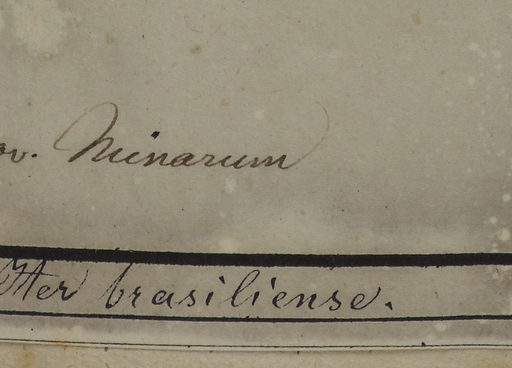 ov. Minarum
Iter brasiliense.